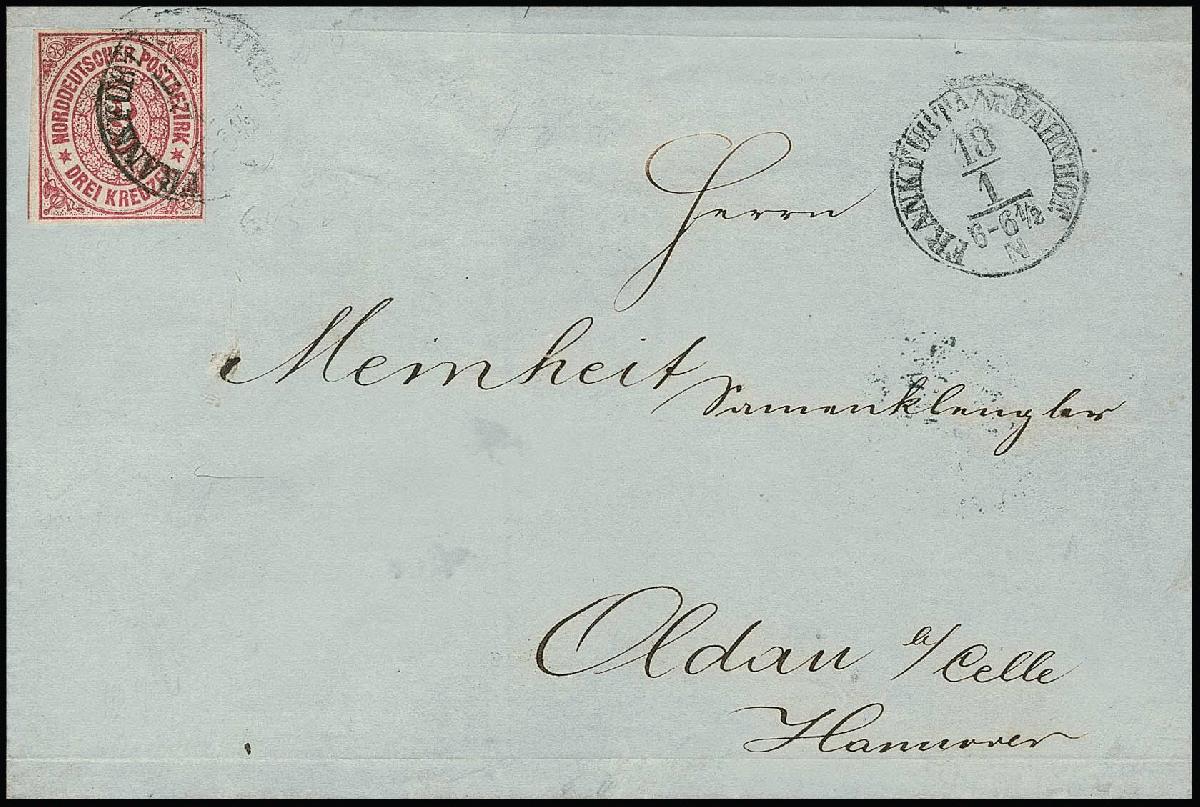 NORDDEUTSCHER POSTBEZIRK
DREI KREUZER
3
FRANKFURT
FRANKFURT A. M. BAHNHOF
18
1
6-6½
N
Herrn
Meinheit Samenklengler
Oldau b/Celle
Hannover